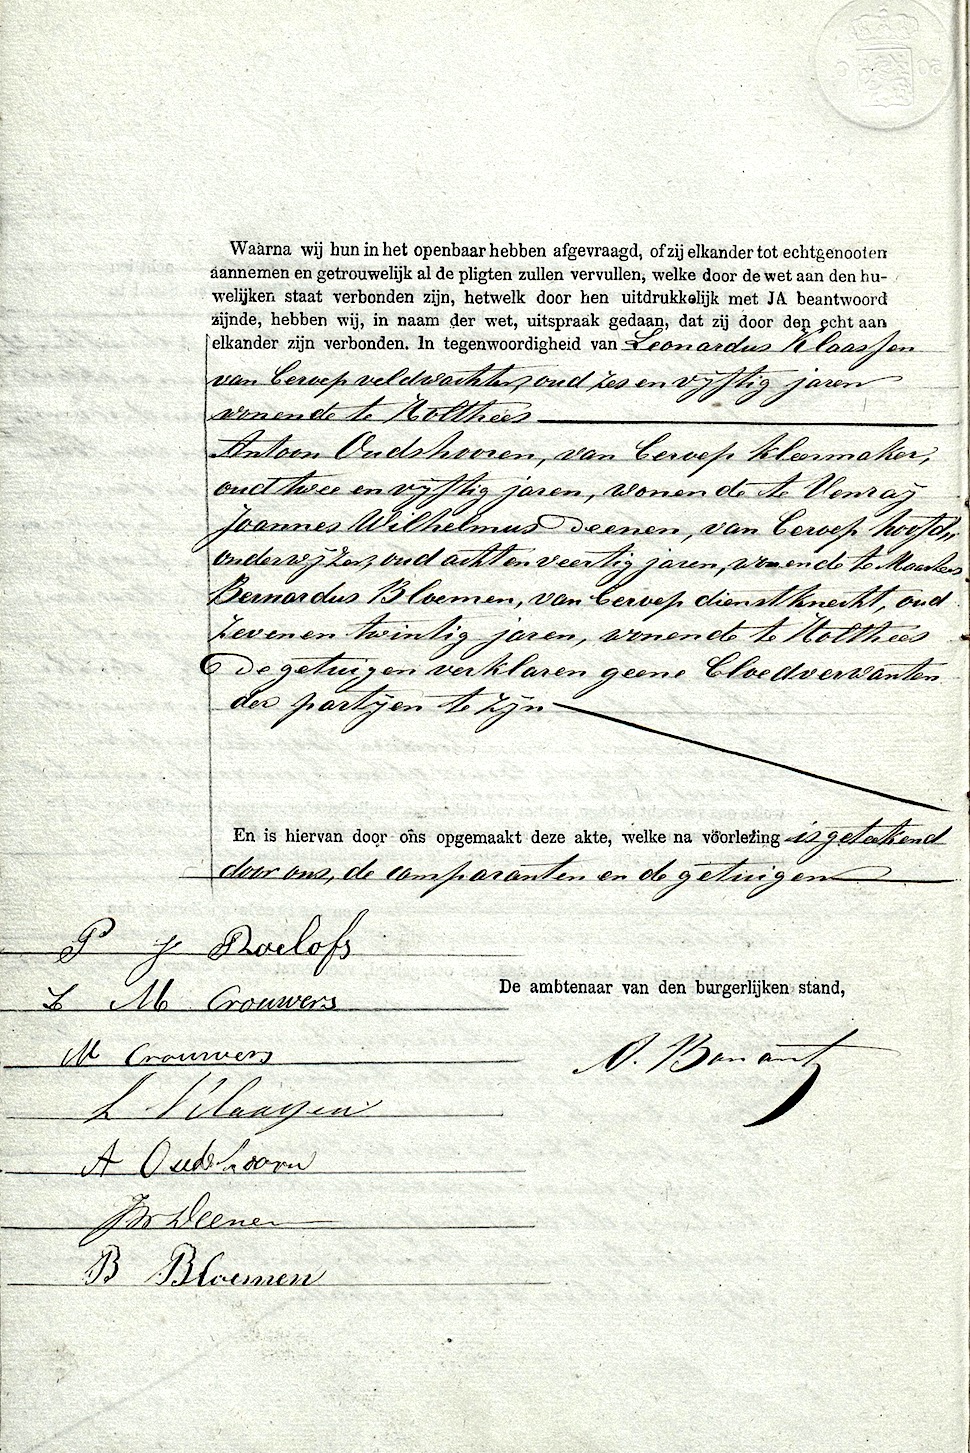 Waarna wij hun in het openbaar hebben afgevraagd, of zij elkander tot echtgenooten
aannemen en getrouwelijk al de pligten zullen vervullen, welke door de wet aan den hu-
welijken staat verbonden zijn, hetwelk door hen uitdrukkelijk met JA beantwoord
zijnde, hebben wij, in naam der wet, uitspraak gedaan, dat zij door den echt aan
elkander zijn verbonden. In tegenwoordigheid van Leonardus Klaassen
van beroep veldwachter, oud zes en vijftig jaren
wonende te Holthees
Antoon Oudshooren, van beroep kleermaker,
oud twee en vijftig jaren, wonende te Venraij
Joannes Wilhelmus Deenen, van beroep hoofd„
onderwijzer, oud acht en veertig jaren, wonende te Maashees
Bernardus Bloemen, van beroep dienstknecht, oud
zeven en twintig jaren, wonende te Holthees
De getuigen verklaren geene bloedverwanten
der partijen te zijn
En is hiervan door ons opgemaakt deze akte, welke na voorlezing is geteekend
door ons, de comparanten en de getuigen
P J Roelofs
De ambtenaar van den burgerlijken stand,
L M Crouwers
M Crouwers
L Klaassen
A Oudshoorn
JW Deenen
B Bloemen